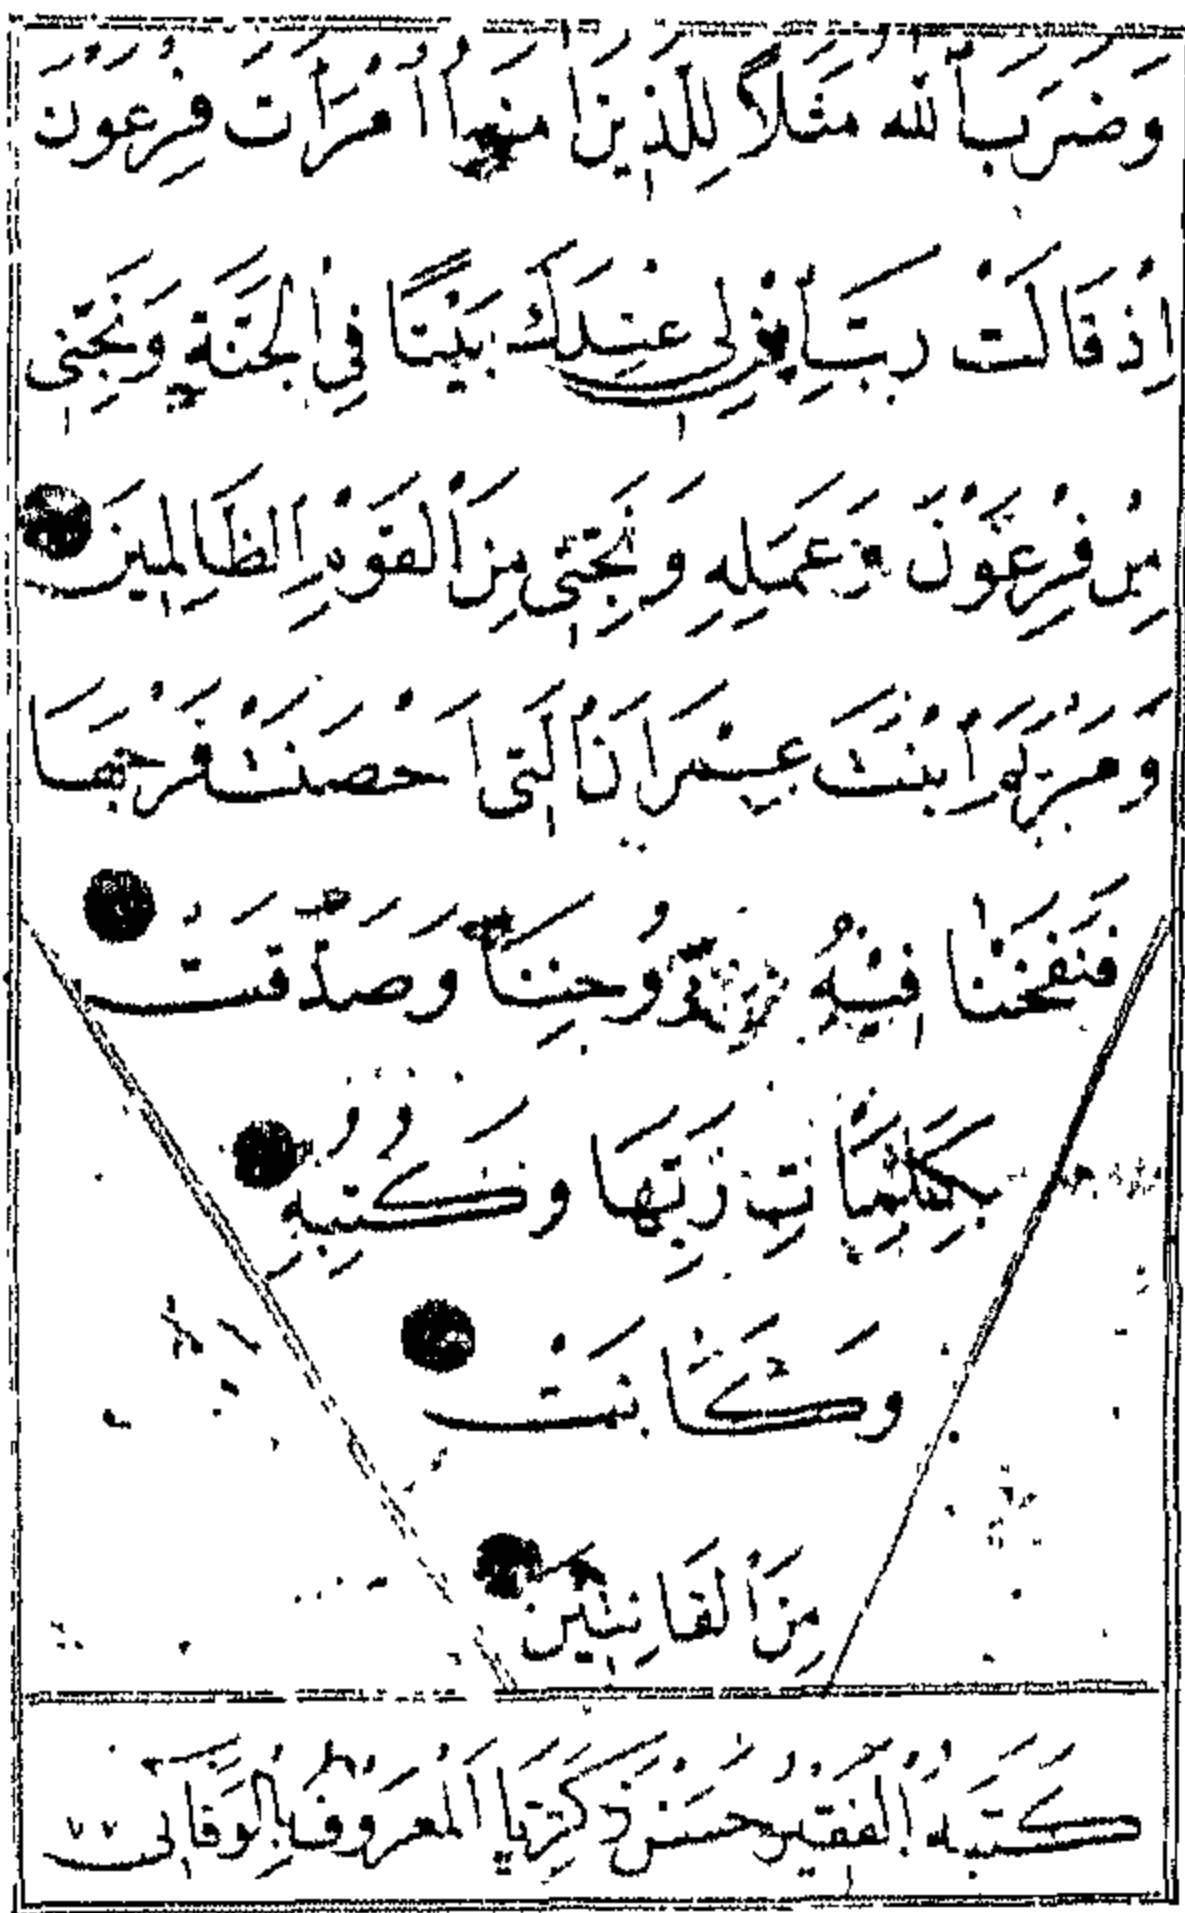 وَضَرَبَ اللّٰه مَثَلًا لِلَّذِينَ اٰمَنُوا امْرَأَتَ فِرْعَوْنَ
اِذْ قَالَتْ رَبِّ ابْنِ لِى عِنْدَكَ بَيْتًا فِى الْجَنَّةِ وَنَجِّنِى
مِنْ فِرْعَوْنَ وَعَمَلِهِ وَنَجِّنِى مِنَ الْقَوْمِ الظَّالِمِينَ
وَمَرْيَمَ ابْنَتَ عِمْرَانَ الَّتِى اَحْصَنَتْ فَرْجَهَا
فَنَفَخْنَا فِيهِ مِنْ رُوحِنَا وَصَدَّقَتْ
بِكَلِمَاتِ رَبِّهَا وَكُتُبِهِ
وَكَانَتْ
مِنَ الْقَانِتِينَ
كَتَبَهُ الْفَقِيرُ حَسَنْ زَكَرِيَّا الْمَعْرُوفُ بِالْوَفَائِى ٧٧